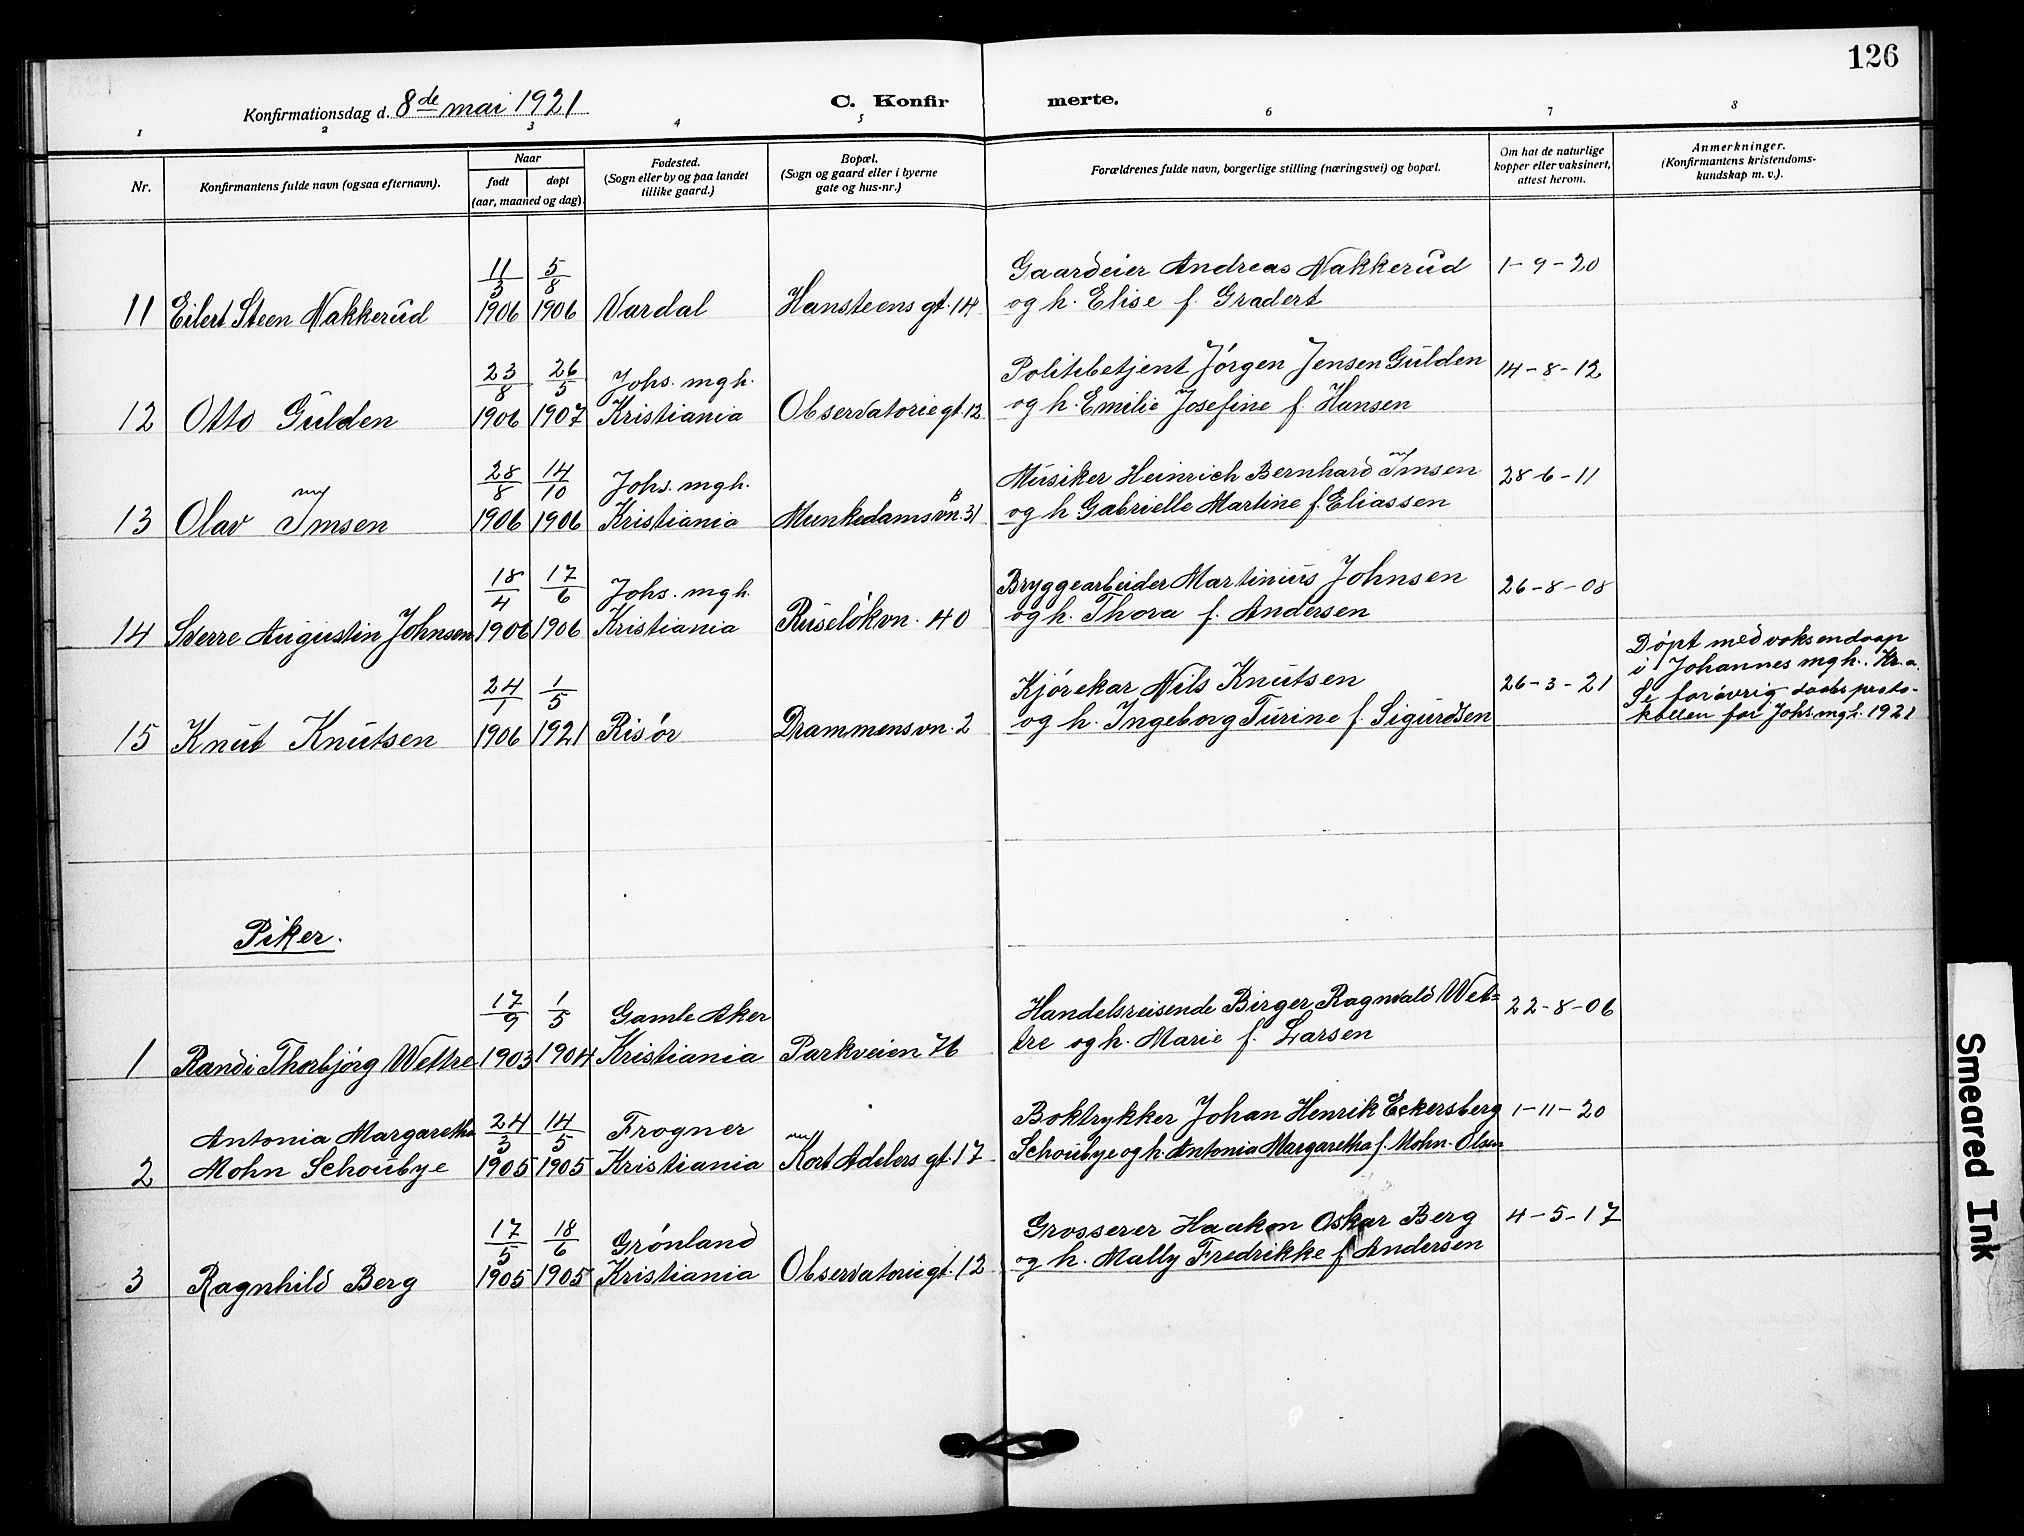 126
Konfirmationsdag d. 8de mai 1921
C. Konfir merte.
1 2 3 4 5 6 7 8
Nr.
Konfirmantens fulde navn (ogsaa efternavn).
Naar
født døpt
(aar, maaned og dag).
Fødested.
(Sogn eller by og paa landet
tillike gaard.)
Bopæl.
(Sogn og gaard eller i byerne
gate og hus-nr.)
Forældrenes fulde navn, borgerlige stilling (næringsvei) og bopæl.
Om hat de naturlige
kopper eller vaksinert,
attest herom.
Anmerkninger.
(Konfirmantens kristendoms-
kundskap m. v.).
11/3 5/8 Gaardeier Andreas Nakkerud 1-9-20
11 Eilert Steen Nakkerud 1906 1906 Vardal Hansteens gt. 14 og h. Elise f. Gradert
23/8 26/5 Johs. mgh. Politibetjent Jörgen Jensen Gulden 14-8-12
12 Otto Gulden 1906 1907 Kristiania Observatoriegt. 12 og h. Emilie Josefine f. Hansen
28/8 14/10 Johs. mgh. Musiker Heinrich Bernhard Imsen 28-6-11
13 Olav Imsen 1906 1906 Kristiania Munkedamsvn. 31 B og h. Gabrielle Martine f. Eliassen
18/4 17/6 Johs. mgh. Bryggearbeider Martinius Johnsen 26-8-08
14 Sverre Augustin Johnsen 1906 1906 Kristiania Ruselökvn. 40 og h. Thora f. Andersen
24/1 1/5 Kjörekar Nils Knutsen 26-3-21
15 Knut Knutsen 1906 1921 Risör Drammensvn. 2 og h. Ingeborg Turine f. Sigurdsen
Döpt med voksendaap
i Johannes mgh. Kr.a.
Se forövrig daabsproto-
kollen for Johs. mgh. 1921
Piker.
17/9 1/5 Gamle Aker Handelsreisende Birger Ragnvald Wet= 22-8-06
1 Randi Thorbjörg Wettre 1903 1904 Kristiania Parkveien 76 tre og h. Marie f. Larsen
Antonia Margaretha 24/3 14/5 Frogner Boktrykker Johan Henrik Eckersberg 1-11-20
2 Mohn Schoubye 1905 1905 Kristiania Kort Adelers gt. 17 Schoubye og h. Antonia Margaretha f. Mohn-Olsen
17/5 18/6 Grönland Grosserer Haakon Oskar Berg 4-5-17
3 Ragnhild Berg 1905 1905 Kristiania Observatoriegt. 12 og h. Mally Fredrikke f. Andersen
Smeared Ink